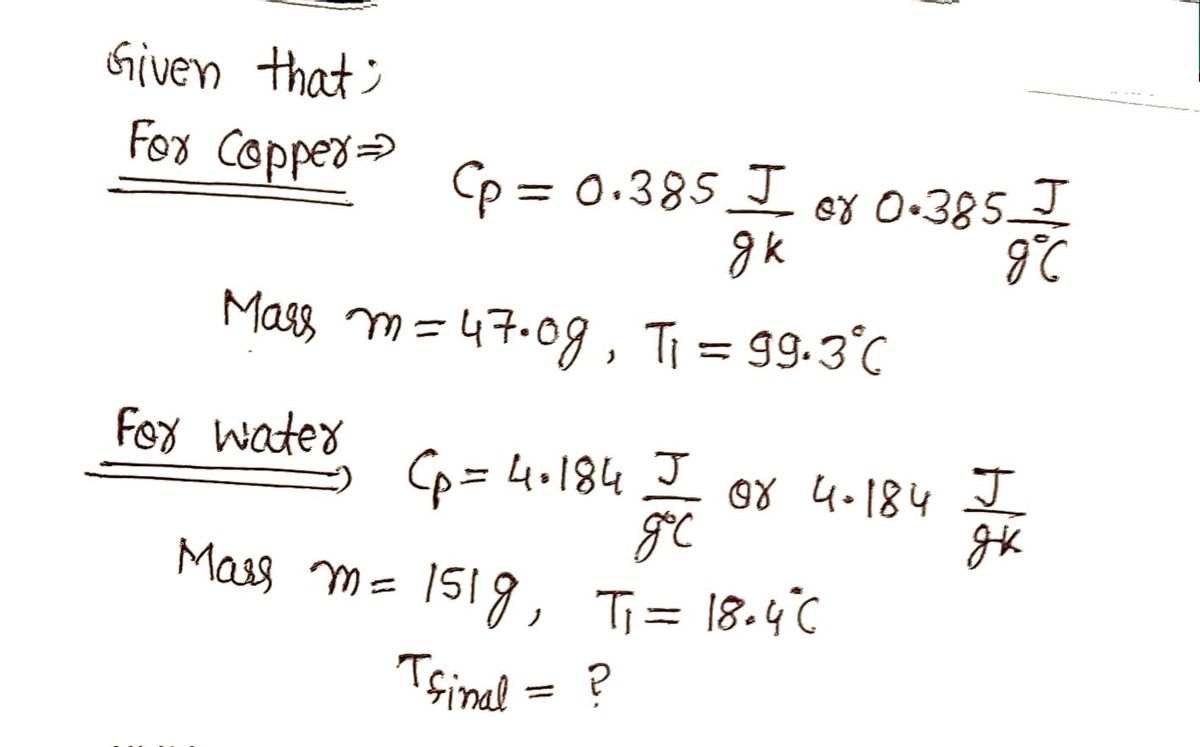 Given that;
For Copper ⇒
Cp = 0.385 J/gk or 0.385 J/g°C
Mass m = 47.0g, T1 = 99.3°C
For water
Cp = 4.184 J/g°C or 4.184 J/gk
Mass m = 151g, T1 = 18.4°C
Tfinal = ?